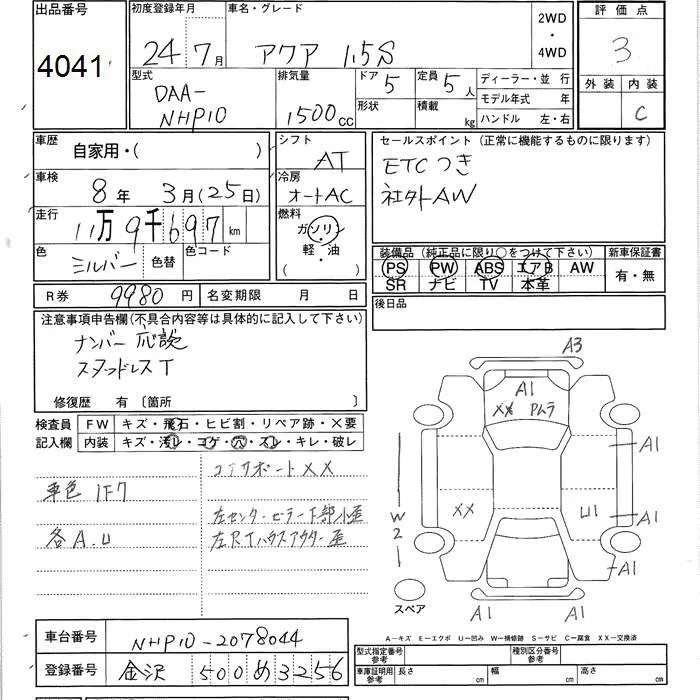 出品番号
4041
初度登録年月
24年7月
車名・グレード
アクア 1.5S
2WD
・
4WD
評価点
3
外装 内装
C
型式
DAA-
NHP10
排気量
1500cc
ドア 5
形状
定員 5人
積載 kg
ディーラー・並行
モデル年式 年
ハンドル 左・右
車歴
自家用・( )
車検
8年 3月(25日)
走行
11万9千697km
色
シルバー
色替
色コード
シフト
AT
冷房
オートAC
燃料
ガソリン
軽・油
( ・ )
セールスポイント (正常に機能するものに限ります)
ETCつき
社外AW
装備品(純正品に限り○をつけて下さい)
PS PW ABS エアB AW
SR ナビ TV 本革
新車保証書
有・無
R券 9980円
名変期限 月 日
後日品
注意事項申告欄(不具合内容等は具体的に記入して下さい)
ナンバー応談
スタッドレスT
修復歴 有〔箇所 〕
検査員
記入欄
FW キズ・飛石・ヒビ割・リペア跡・X要
内装 キズ・汚レ・コゲ・穴・スレ・キレ・破レ
車色 1F7
各A.U
コアサポートXX
左センタ・ピラー下部小歪
左RTハウスアウター歪
A3
A1
XX アムラ
A1
XX
U1
A1
W2
A1
A1
A1
スペア
A-キズ E-エクボ U-凹み W-補修跡 S-サビ C-腐食 XX-交換済
車台番号
NHP10-2078044
登録番号
金沢 500 め 3256
型式指定番号
参考
種別区分番号
参考
車庫証明用
参考
長さ cm
幅 cm
高さ cm